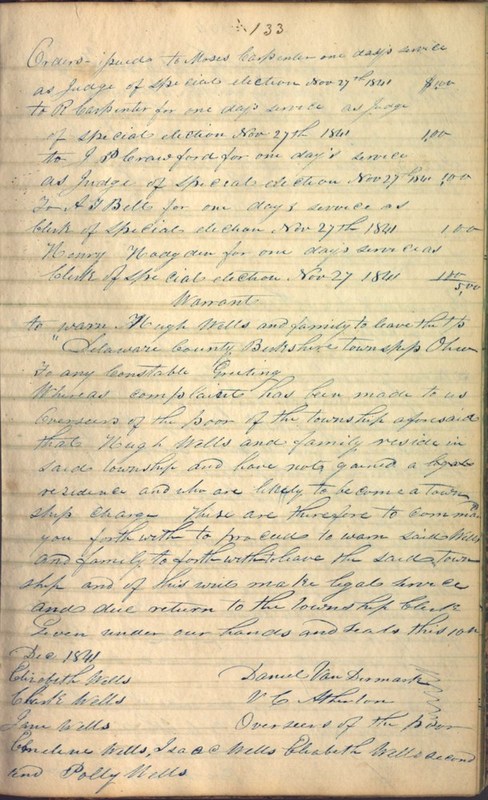 133
Orders issued to Moses Carpenter one days service
as Judge of Special election Nov 27th 1841 $1,00
to R Carpenter for one days service as Judge
of special election Nov 27th 1841 1,00
to J P Crawford for one day's service
as Judge of special election Nov 27th 1841 1,00
To A F Bell for one days service as
Clerk of special election Nov 27th 1841 1 00
Henry Hodgden for one days service as
Clerk of special election Nov 27 1841 1 00
5,00
Warrant
to warn Hugh Wells and family to leave the tp
"Delaware County Berkshire township Ohio
To any Constable Greeting
Whereas complaint has been made to us
Overseers of the poor of the township aforesaid
that Hugh Wells and family reside in
said township and have not gained a legal
residence and who are likely to become a town
ship charge These are therefore to command
you forth with to proceed to warn said Wells
and family to forthwith leave the said town
ship and of this writ make legal service
and due return to the township Clerk
Given under our hands and seals this 10th
Dec 1841
Elizabeth Wells Daniel Van Dermark
Clark Wells V C Atherton
Jane Wells Overseers of the Poor
Emeline Wells, Isaac Wells Elizabeth Wells second
and Polly Wells